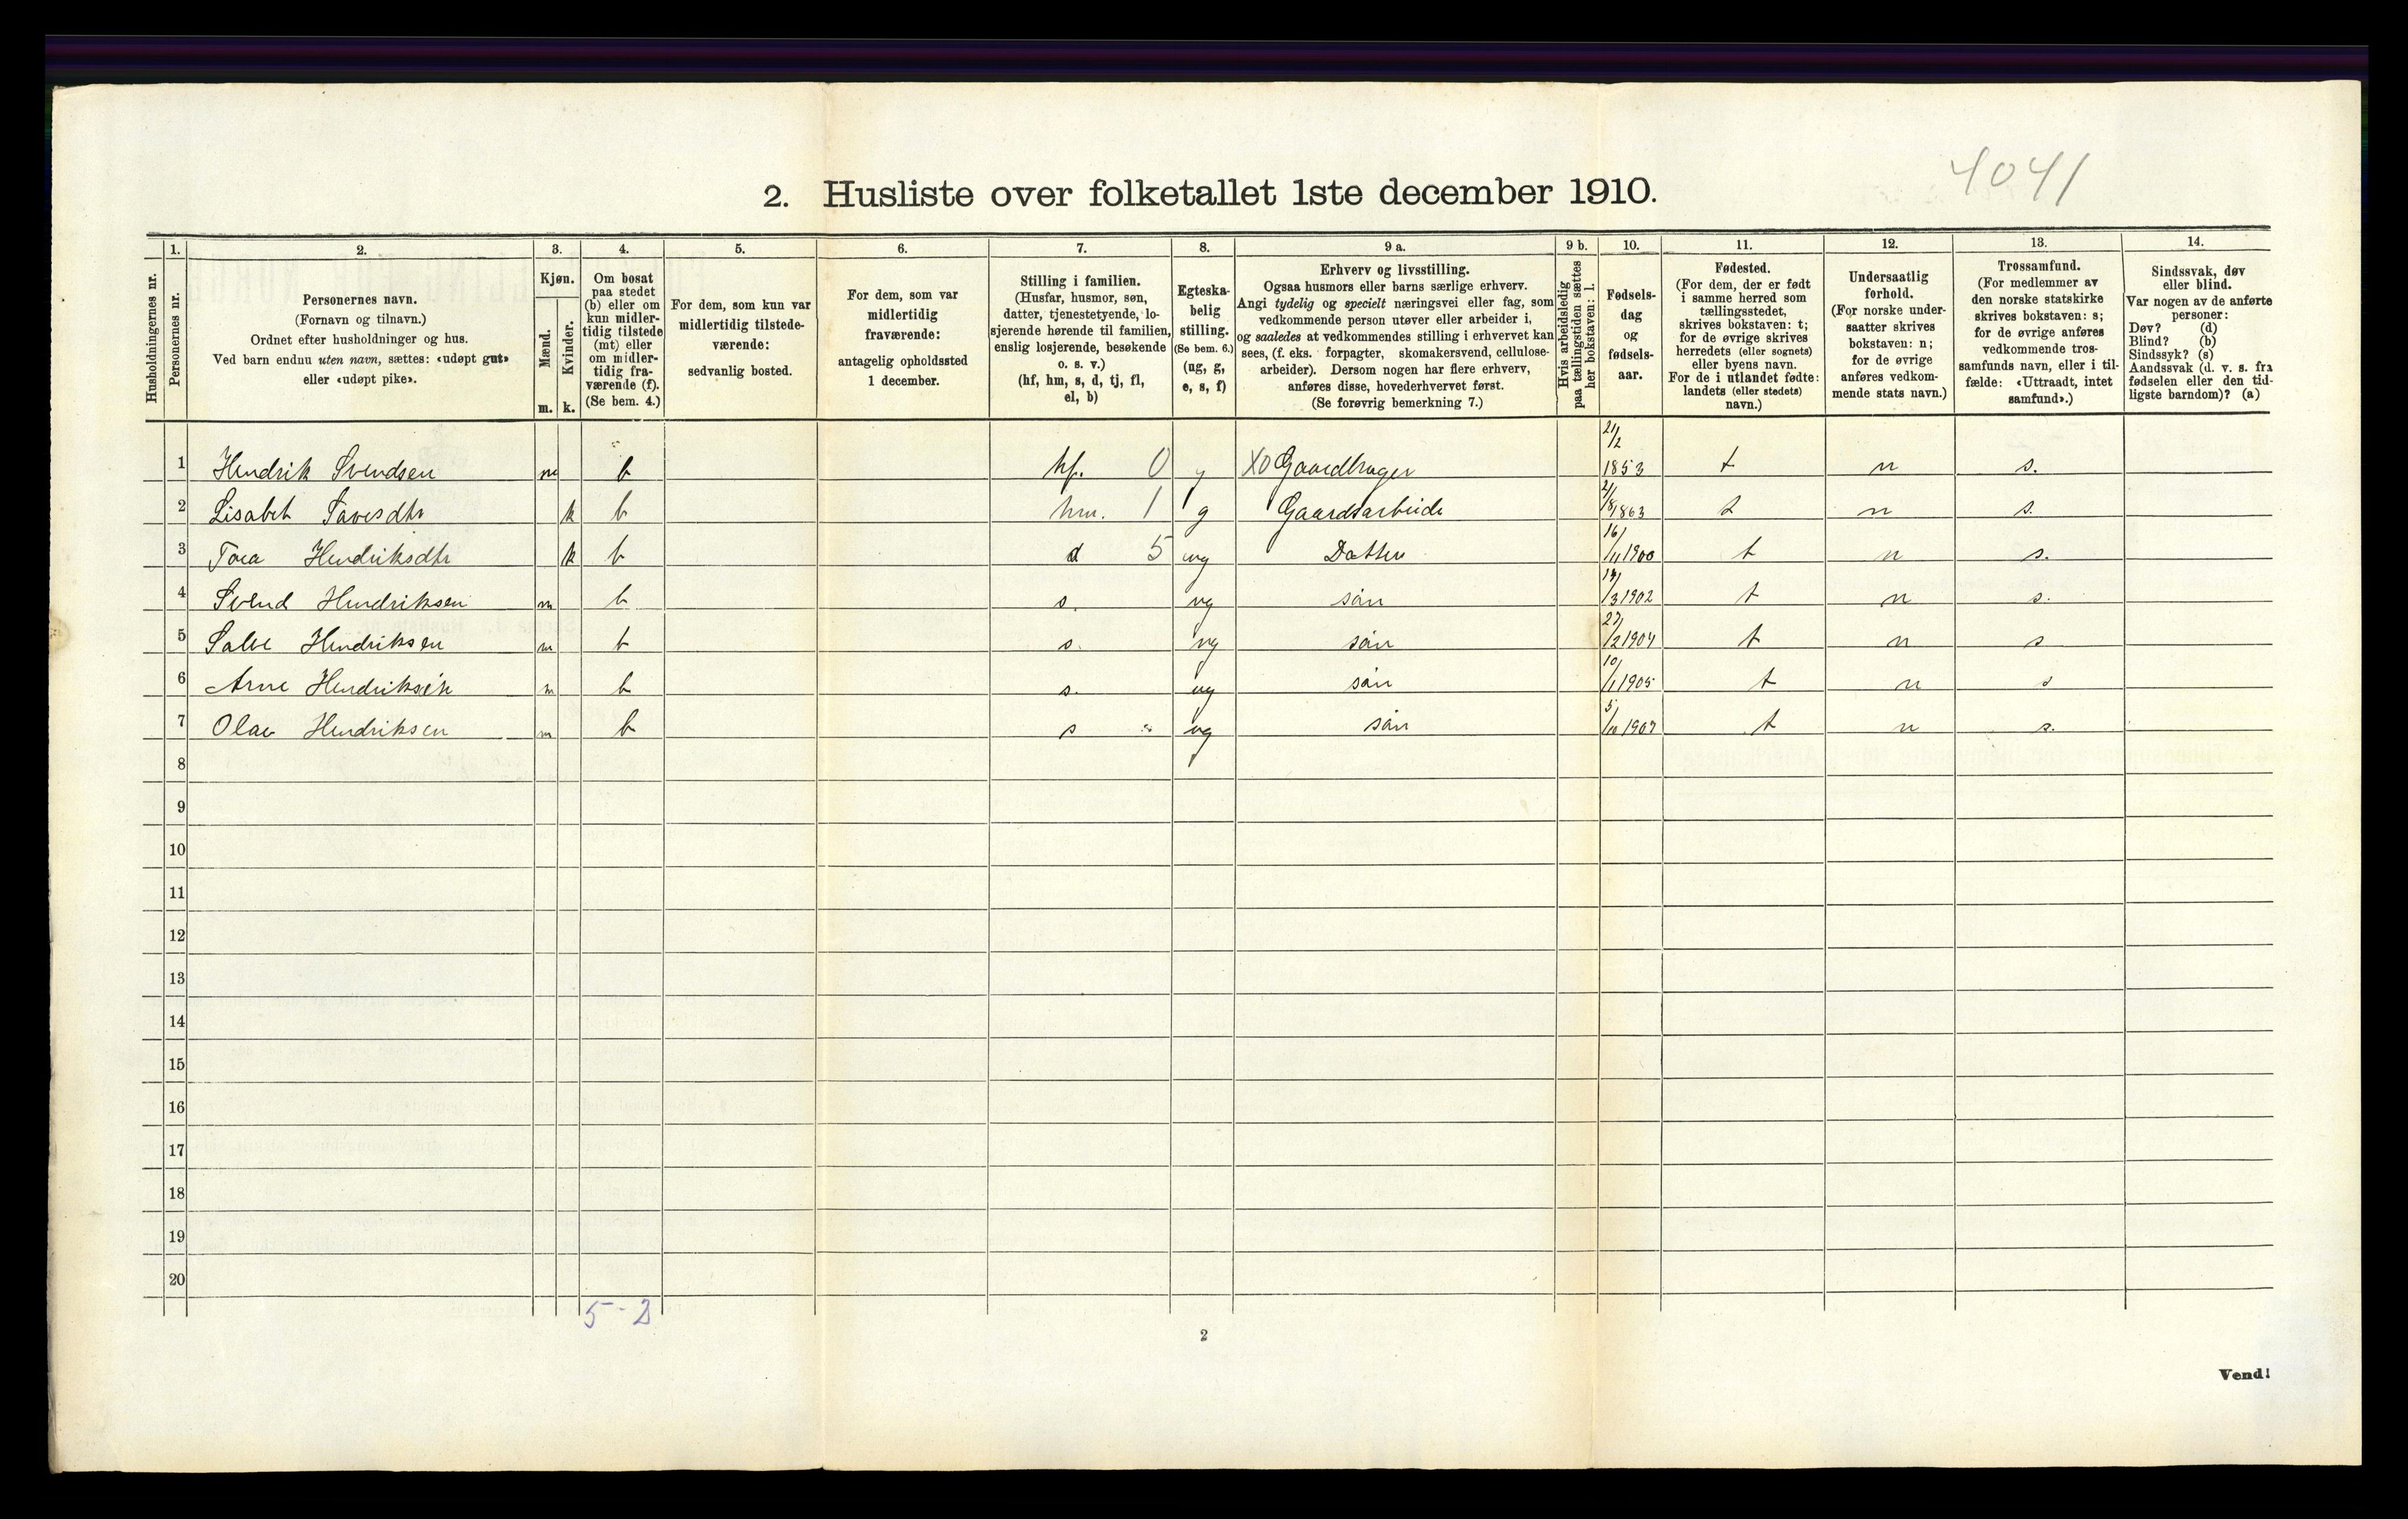 4041
2. Husliste over folketallet 1ste december 1910.
Husholdningernes nr.
1.
Personernes nr.
2.
Personernes navn.
(Fornavn og tilnavn.)
Ordnet efter husholdninger og hus.
Ved barn endnu uten navn, sættes: «udøpt gut»
eller «udøpt pike».
3.
Kjøn.
Mænd.
Kvinder.
m. k.
4.
Om bosat
paa stedet
(b) eller om
kun midler-
tidig tilstede
(mt) eller
om midler-
tidig fra-
værende (f).
(Se bem. 4.)
5.
For dem, som kun var
midlertidig tilstede-
værende:
sedvanlig bosted.
6.
For dem, som var
midlertidig
fraværende:
antagelig opholdssted
1 december.
7.
Stilling i familien.
(Husfar, husmor, søn,
datter, tjenestetyende, lo-
sjerende hørende til familien,
enslig losjerende, besøkende
o. s. v.)
(hf, hm, s, d, tj, fl,
el, b)
8.
Egteska-
belig
stilling.
(Se bem. 6.)
(ug, g,
e, s, f)
9 a.
Erhverv og livsstilling.
Ogsaa husmors eller barns særlige erhverv.
Angi tydelig og specielt næringsvei eller fag, som
vedkommende person utøver eller arbeider i,
og saaledes at vedkommendes stilling i erhvervet kan
sees, (f. eks. forpagter, skomakersvend, cellulose-
arbeider). Dersom nogen har flere erhverv,
anføres disse, hovederhvervet først.
(Se forøvrig bemerkning 7.)
9 b.
Hvis arbeidsledig
paa tællingstiden sættes
her bokstaven: l.
10.
Fødsels-
dag
og
fødsels-
aar.
11.
Fødested.
(For dem, der er født
i samme herred som
tællingsstedet,
skrives bokstaven: t;
for de øvrige skrives
herredets (eller sognets)
eller byens navn.
For de i utlandet fødte:
landets (eller stedets)
navn.)
12.
Undersaatlig
forhold.
(For norske under-
saatter skrives
bokstaven: n;
for de øvrige
anføres vedkom-
mende stats navn.)
13.
Trossamfund.
(For medlemmer av
den norske statskirke
skrives bokstaven: s;
for de øvrige anføres
vedkommende tros-
samfunds navn, eller i til-
fælde: «Uttraadt, intet
samfund».)
14.
Sindssvak, døv
eller blind.
Var nogen av de anførte
personer:
Døv? (d)
Blind? (b)
Sindssyk? (s)
Aandssvak (d. v. s. fra
fødselen eller den tid-
ligste barndom)? (a)
1 Hendrik Svendsen m b hf. 0 g X0 Gaardbruger 21/2 1853 t n s.
2 Lisabet Tavesdtr k b hm. 1 g Gaardsarbeide 2/8 1863 t n s.
3 Tora Hendriksdtr k b d 5 ug Datter 16/11 1900 t n s.
4 Svend Hendriksen m b s. ug sön 19/3 1902 t n s.
5 Salve Hendriksen m b s. ug sön 27/2 1904 t n s
6 Arne Hendriksen m b s. ug sön 10/1 1905 t n s
7 Olav Hendriksen m b s ug sön 5/10 1907 t n s.
8
9
10
11
12
13
14
15
16
17
18
19
20
5-2
2
Vend!